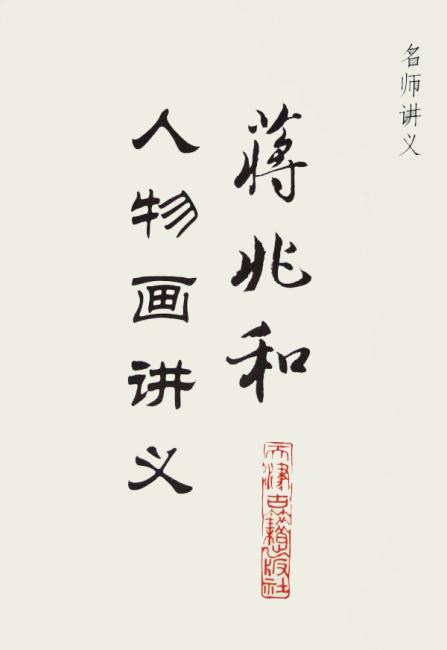 名师讲义
蒋兆和
人物画讲义
天津古籍出版社